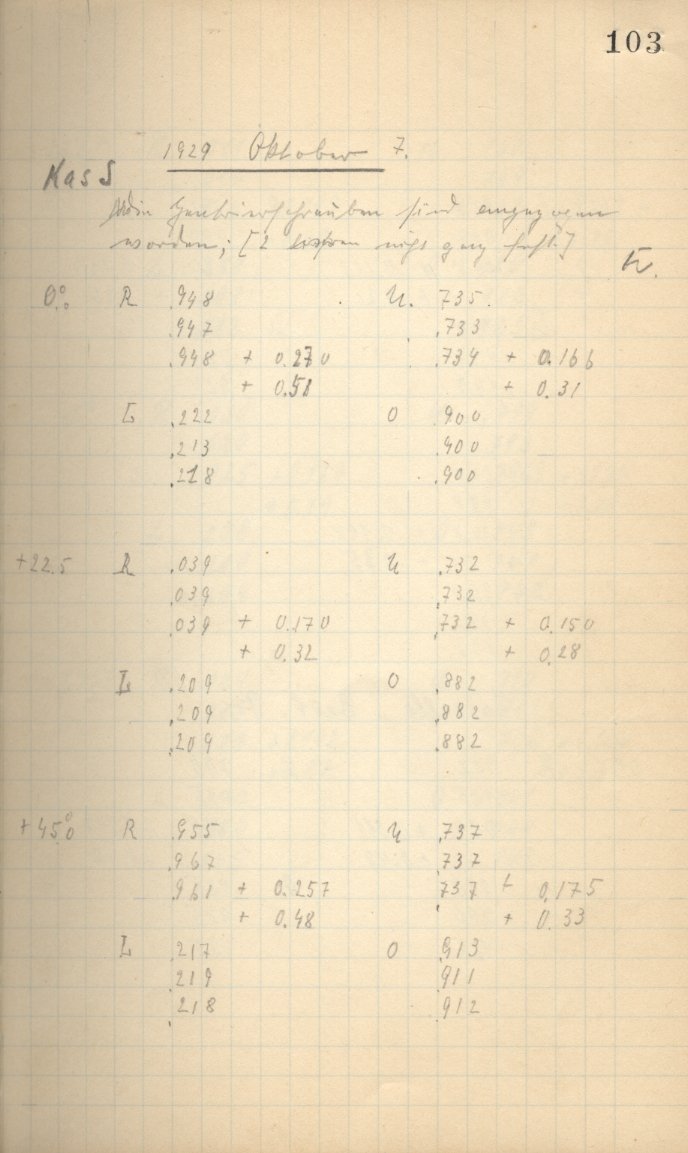 103
1929 Oktober 7.
Kas S
Die Zentrierschrauben sind angezogen
worden; [2 nicht ganz fest.]
0°.0 R .948 U. .735
.947 .733
.948 + 0.270 .734 + 0.166
+ 0.51 + 0.31
L .222 O .900
.213 .900
.218 .900
+22.5 R .039 U .732
.039 .732
.039 + 0.170 .732 + 0.150
+ 0.32 + 0.28
L .209 O .882
.209 .882
.209 .882
+45°.0 R .955 U .737
.967 .737
.961 + 0.257 .737 + 0.175
+ 0.48 + 0.33
L .217 O .913
.219 .911
.218 .912